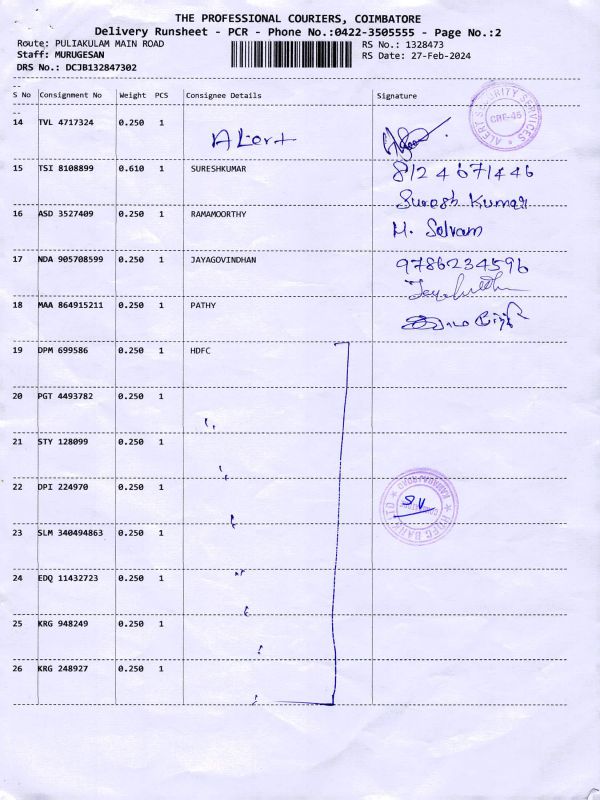 THE PROFESSIONAL COURIERS, COIMBATORE
Delivery Runsheet - PCR - Phone No.:0422-3505555 - Page No.:2
Route: PULIAKULAM MAIN ROAD
RS No.: 1328473
Staff: MURUGESAN
RS Date: 27-Feb-2024
DRS No.: DCJB132847302
S No Consignment No Weight PCS Consignee Details Signature
14 TVL 4717324 0.250 1 Alert
ALERT SECURITY SERVICES
CBE-45
15 TSI 8108899 0.610 1 SURESHKUMAR 8124671446
Suresh Kumar
16 ASD 3527409 0.250 1 RAMAMOORTHY M. Selvam
17 NDA 905708599 0.250 1 JAYAGOVINDHAN 9786234596
18 MAA 864915211 0.250 1 PATHY
19 DPM 699586 0.250 1 HDFC
20 PGT 4493782 0.250 1
21 STY 128099 0.250 1
22 DPI 224970 0.250 1
HDFC BANK LTD
23 SLM 340494863 0.250 1
24 EDQ 11432723 0.250 1
25 KRG 948249 0.250 1
26 KRG 248927 0.250 1